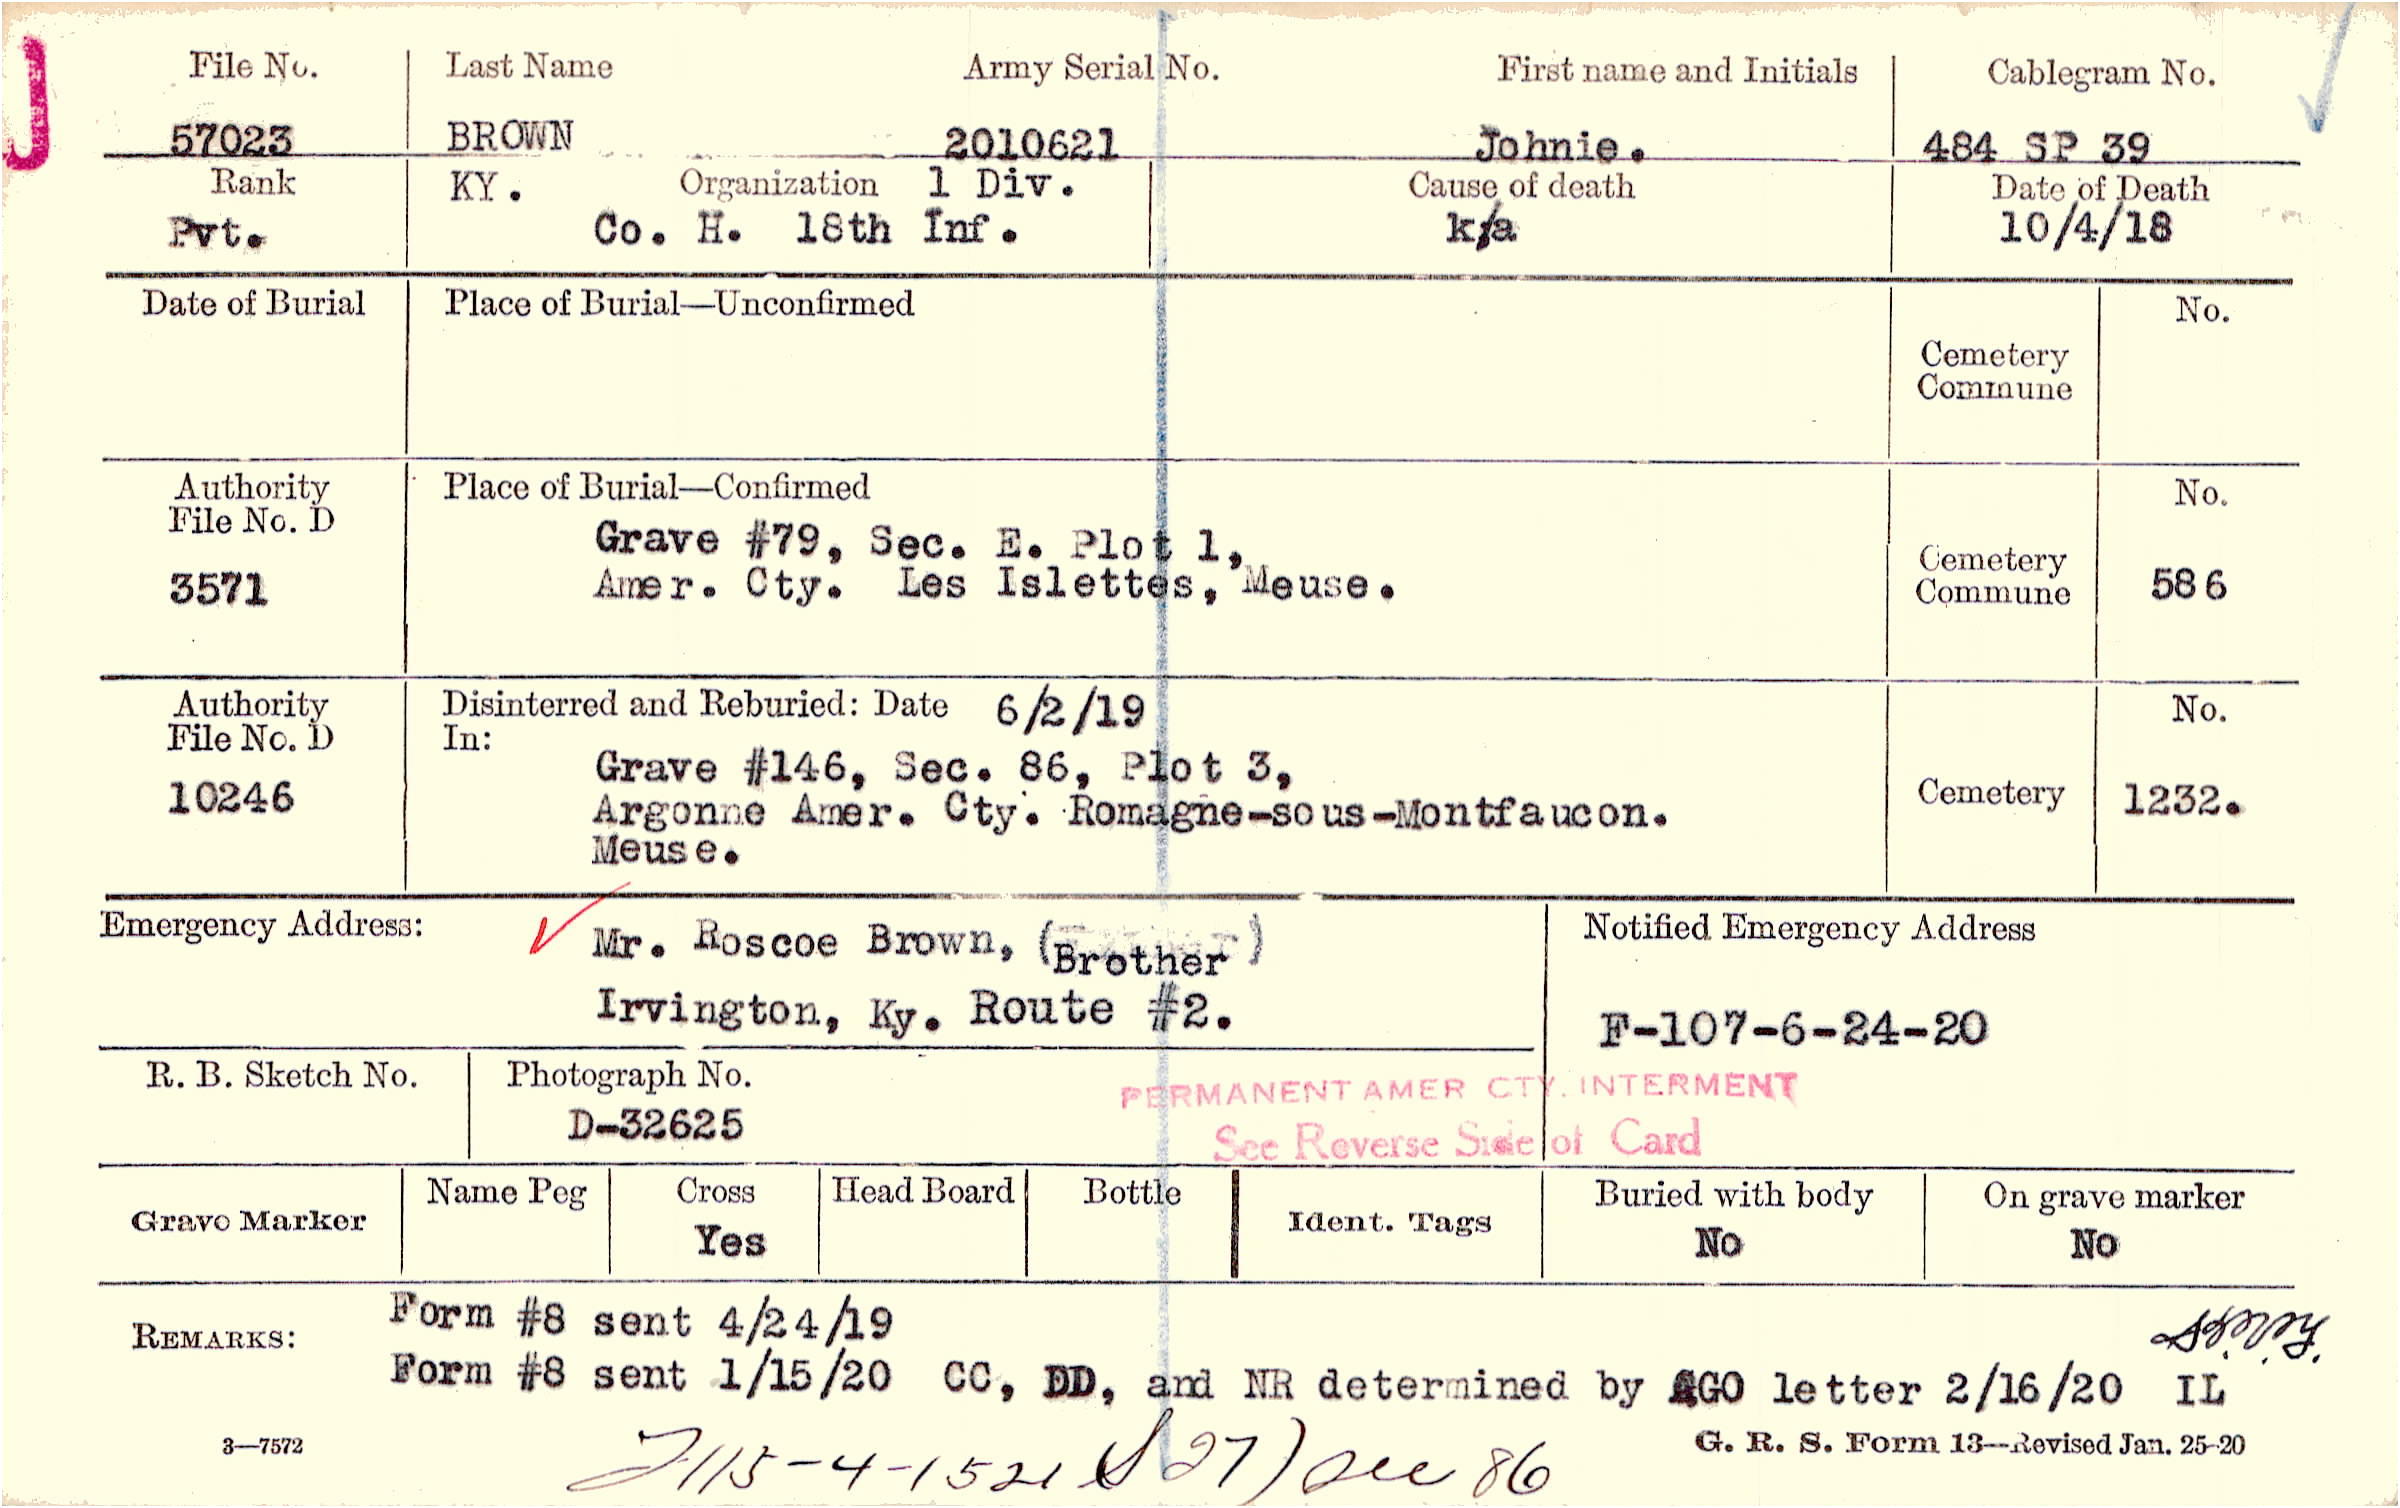 J
File No. Last Name Army Serial No. First name and Initials Cablegram No.
57023 BROWN 2010621 Johnie. 484 SP 39
Rank KY. Organization 1 Div. Cause of death Date of Death
Pvt. Co. H. 18th Inf. k/a 10/4/18
Date of Burial Place of Burial—Unconfirmed No.
Cemetery
Commune
Authority Place of Burial—Confirmed No.
File No. D
Grave #79, Sec. E. Plot 1,
Cemetery
3571 Amer. Cty. Les Islettes, Meuse. Commune 586
Authority Disinterred and Reburied: Date 6/2/19 No.
File No. D In:
Grave #146, Sec. 86, Plot 3,
10246 Argonne Amer. Cty. Romagne-sous-Montfaucon. Cemetery 1232.
Meuse.
Emergency Address: Mr. Roscoe Brown, (Brother) Notified Emergency Address
Irvington, Ky. Route #2. F-107-6-24-20
R. B. Sketch No. Photograph No.
D-32625
PERMANENT AMER CTY. INTERMENT
See Reverse Side of Card
Grave Marker Name Peg Cross Head Board Bottle Ident. Tags Buried with body On grave marker
Yes No No
REMARKS: Form #8 sent 4/24/19
Form #8 sent 1/15/20 CC, DD, and NR determined by AGO letter 2/16/20 IL
3—7572 G. R. S. Form 13—Revised Jan. 25-20
115-4-1521 (S 27) Sec 86